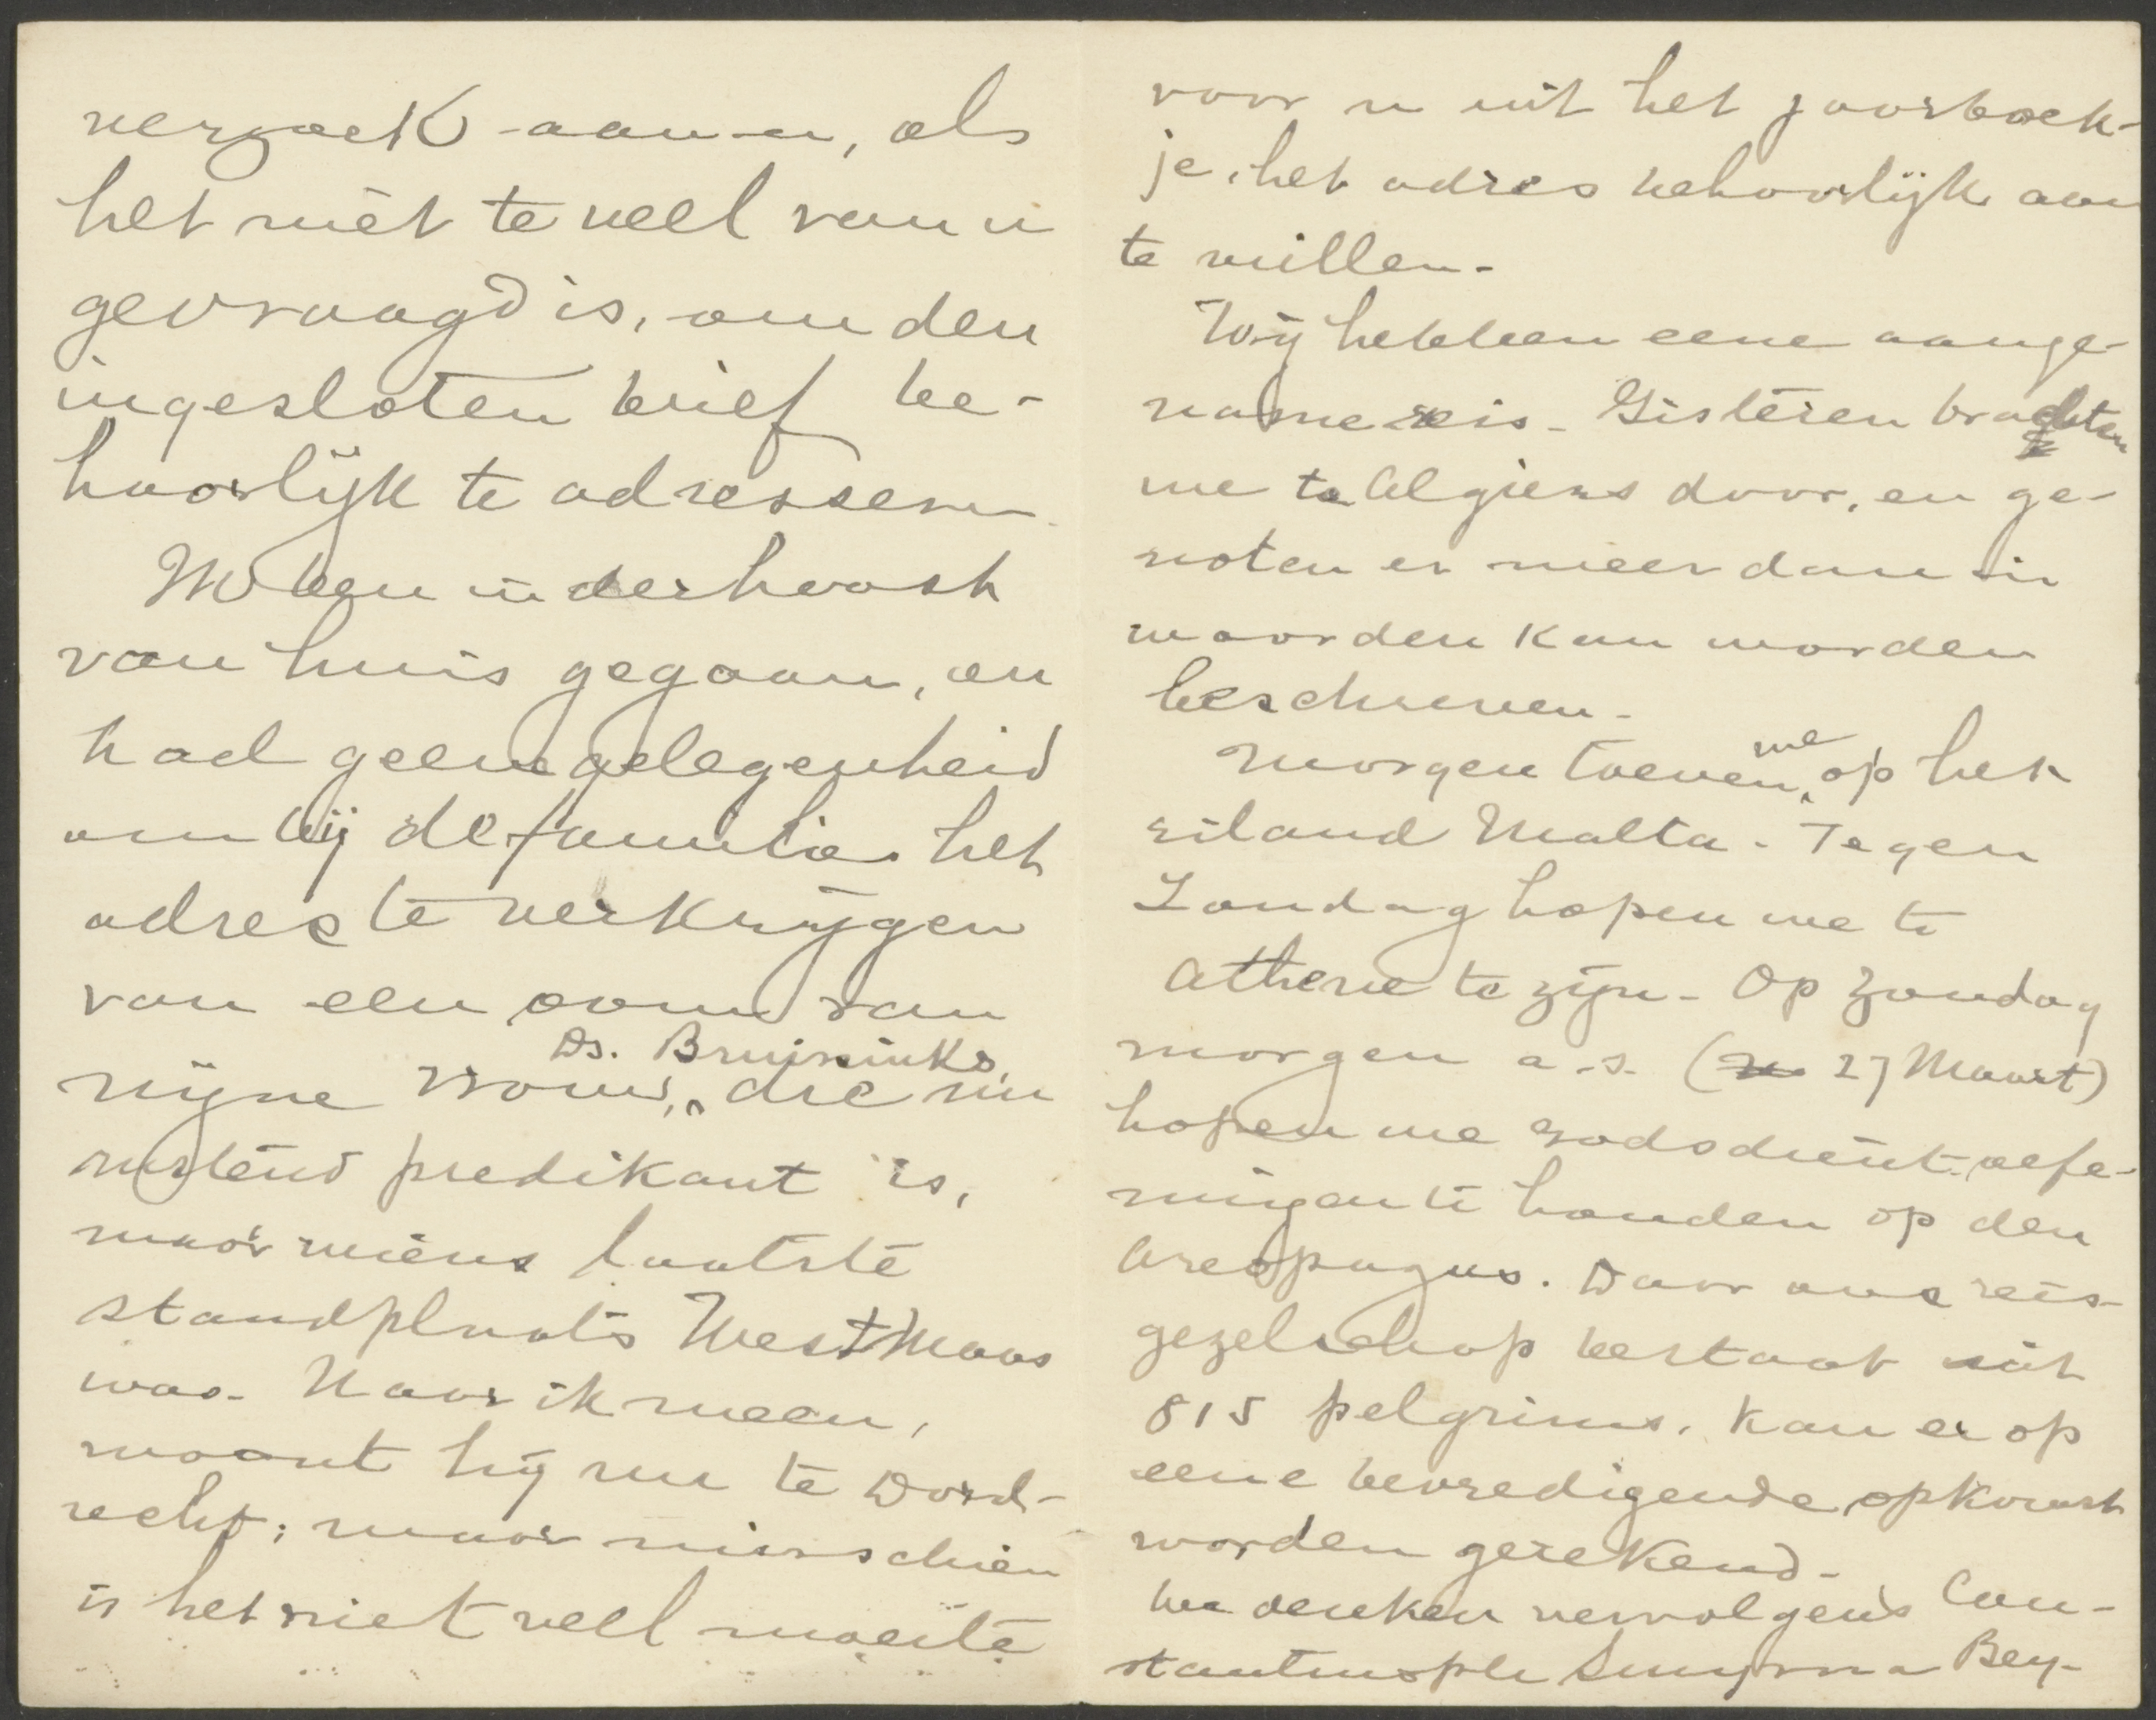 verzoek aan u, als
het niet te veel van u
gevraagd is, om den
ingesloten brief be-
hoorlijk te adresseren
M ben in der haast
van huis gegaan, en
had geene gelegenheid
om bij de familie het
adres te verkrijgen
van een oom van
Ds. Bruisinks,
mijne vrouw, die nu
rustend predikant is,
maar wiens laatste
standplaats WestMaas
was. Naar ik meen,
woont hij nu te Dord-
recht; maar misschien
is het niet veel moeite
voor u uit het jaarboek-
je, het adres behoorlijk aan
te vullen.
Wij hebben eene aange-
name reis. Gisteren brachten
we te Algiers door, en ge-
noten er meer dan in
woorden kan worden
beschreven.
Morgen toeven we op het
eiland Malta. Tegen
Zondag hopen we te
Athene te zijn. Op Zondag
morgen a.s. (27 Maart)
hopen we godsdienstoefe-
ningen te houden op den
Areopagus. Daar ons reis-
gezelschap bestaat uit
815 pelgrims, kan er op
eene bevredigende opkomst
worden gerekend.
We denken vervolgens Con-
stantinople Smyrna Bey-